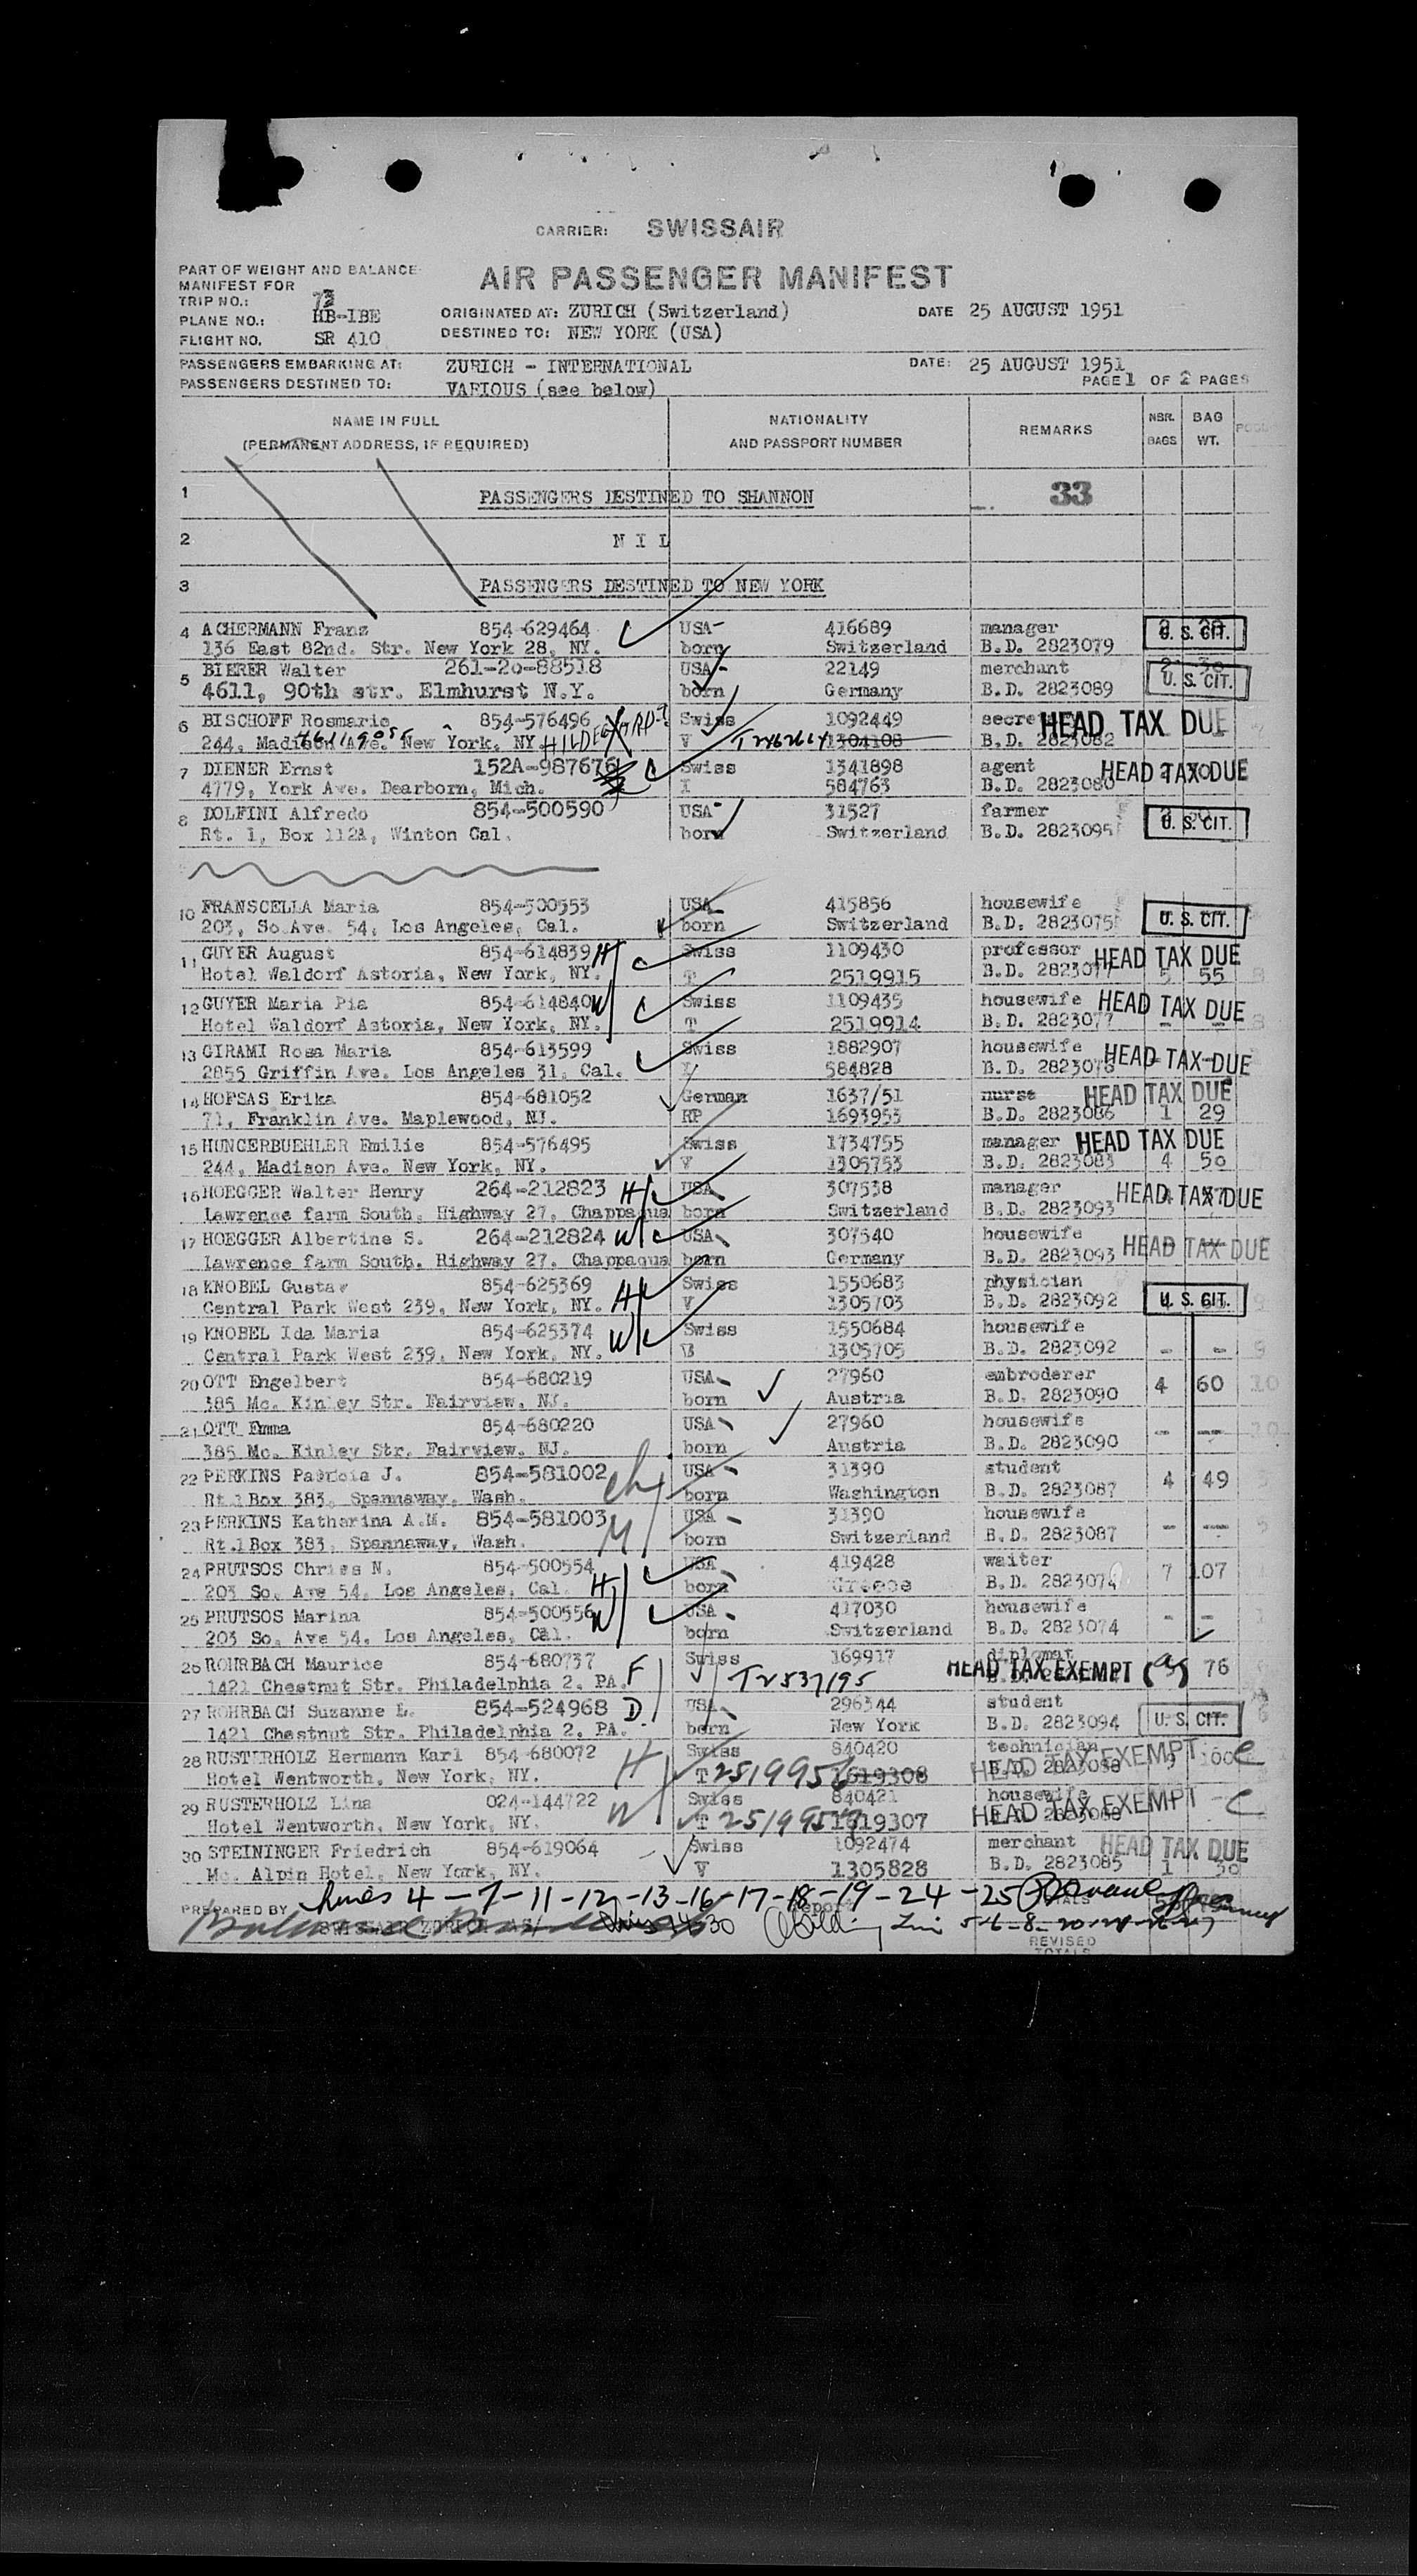 CARRIER: SWISSAIR
PART OF WEIGHT AND BALANCE
MANIFEST FOR
AIR PASSENGER MANIFEST
TRIP NO.: 73
PLANE NO.: HB-IBE ORIGINATED AT: ZURICH (Switzerland) DATE 25 AUGUST 1951
FLIGHT NO. SR 410 DESTINED TO: NEW YORK (USA)
PASSENGERS EMBARKING AT: ZURICH - INTERNATIONAL DATE: 25 AUGUST 1951
PASSENGERS DESTINED TO: VARIOUS (see below) PAGE 1 OF 2 PAGES
NAME IN FULL NATIONALITY REMARKS NBR. BAG
(PERMANENT ADDRESS, IF REQUIRED) AND PASSPORT NUMBER BAGS WT.
1 PASSENGERS DESTINED TO SHANNON 33
2 N I L
3 PASSENGERS DESTINED TO NEW YORK
4 ACHERMANN Franz 854-629464 USA 416689 manager U. S. CIT.
136 East 82nd. Str. New York 28, NY. born Switzerland B.D. 2823079
5 BIERER Walter 261-20-88518 USA 22149 merchant U. S. CIT.
4611, 90th str. Elmhurst N.Y. born Germany B.D. 2823089
6 BISCHOFF Rosmarie 854-576496 HILDEGARD Swiss 1092449 HEAD TAX DUE
244, Madison Ave. New York, NY V T2462614 1304108 B.D. 2823082
7 DIENER Ernst 152A-987676 Swiss 1341898 agent HEAD TAX DUE
4779, York Ave. Dearborn, Mich. I 584763 B.D. 2823080
8 DOLFINI Alfredo 854-500590 USA 31527 farmer U. S. CIT.
Rt. 1, Box 112A, Winton Cal. born Switzerland B.D. 2823095
10 FRANSCELLA Maria 854-500553 USA 415856 housewife U. S. CIT.
203, So.Ave. 54, Los Angeles, Cal. born Switzerland B.D. 2823075
11 GUYER August 854-614839 H Swiss 1109430 professor HEAD TAX DUE
Hotel Waldorf Astoria, New York, NY. T 2519915 B.D. 2823077 5 55
12 GUYER Maria Pia 854-614840 W Swiss 1109435 housewife HEAD TAX DUE
Hotel Waldorf Astoria, New York, NY. T 2519914 B.D. 2823077 - -
13 GIRAMI Rosa Maria 854-613599 Swiss 1882907 housewife HEAD TAX DUE
2855 Griffin Ave. Los Angeles 31, Cal. I 584828 B.D. 2823078
14 HOPSAS Erika 854-681052 German 1637/51 nurse HEAD TAX DUE
71, Franklin Ave. Maplewood, NJ. RP 1693953 B.D. 2823086 1 29
15 HUNGERBUEHLER Emilie 854-576495 Swiss 1734755 manager HEAD TAX DUE
244, Madison Ave. New York, NY. V 1305753 B.D. 2823083 4 50
16 HOEGGER Walter Henry 264-212823 H USA 307538 manager HEAD TAX DUE
Lawrence farm South, Highway 27, Chappaqua born Switzerland B.D. 2823093
17 HOEGGER Albertine S. 264-212824 W USA 307540 housewife HEAD TAX DUE
Lawrence farm South. Highway 27. Chappaqua born Germany B.D. 2823093
18 KNOBEL Gustav 854-625369 H Swiss 1550683 physician U. S. CIT.
Central Park West 239, New York, NY. V 1305703 B.D. 2823092
19 KNOBEL Ida Maria 854-625374 W Swiss 1550684 housewife
Central Park West 239, New York, NY. V 1305705 B.D. 2823092 - -
20 OTT Engelbert 854-680219 USA 27960 embroderer
385 Mc. Kinley Str. Fairview, NJ. born Austria B.D. 2823090 4 60
21 OTT Emma 854-680220 USA 27960 housewife
385 Mc. Kinley Str. Fairview, NJ. born Austria B.D. 2823090 - -
22 PERKINS Patricia J. 854-581002 Ch USA 31390 student
Rt.1 Box 383, Spannaway, Wash. born Washington B.D. 2823087 4 49
23 PERKINS Katharina A.M. 854-581003 M USA 31390 housewife
Rt.1 Box 383, Spannaway, Wash. born Switzerland B.D. 2823087 - -
24 PRUTSOS Chriss N. 854-500554 H USA 419428 waiter
203 So. Ave 54, Los Angeles, Cal. born Greece B.D. 2823074 7 107
25 PRUTSOS Marina 854-500556 W USA 417030 housewife
203 So. Ave 54, Los Angeles, Cal. born Switzerland B.D. 2823074 - -
26 ROHRBACH Maurice 854-680737 F Swiss 169917 diplomat
1421 Chestnut Str. Philadelphia 2, PA. T2537195 HEAD TAX EXEMPT (a) 76
27 ROHRBACH Suzanne L. 854-524968 D. USA 296344 student
1421 Chestnut Str. Philadelphia 2, PA. born New York B.D. 2823094 U. S. CIT.
28 RUSTERHOLZ Hermann Karl 854-680072 H Swiss 840420 technician
Hotel Wentworth, New York, NY. T 2519956 1619308 HEAD TAX EXEMPT e
29 RUSTERHOLZ Lina 024-144722 W Swiss 840421 housewife
Hotel Wentworth, New York, NY. T 1619307 HEAD TAX EXEMPT e
30 STEININGER Friedrich 854-619064 Swiss 1092474 merchant HEAD TAX DUE
Mc. Alpin Hotel, New York, NY. V 1305828 B.D. 2823085 1 30
Lines 4-7-11-12-13-16-17-18-19-24-25
PREPARED BY
REVISED
TOTALS